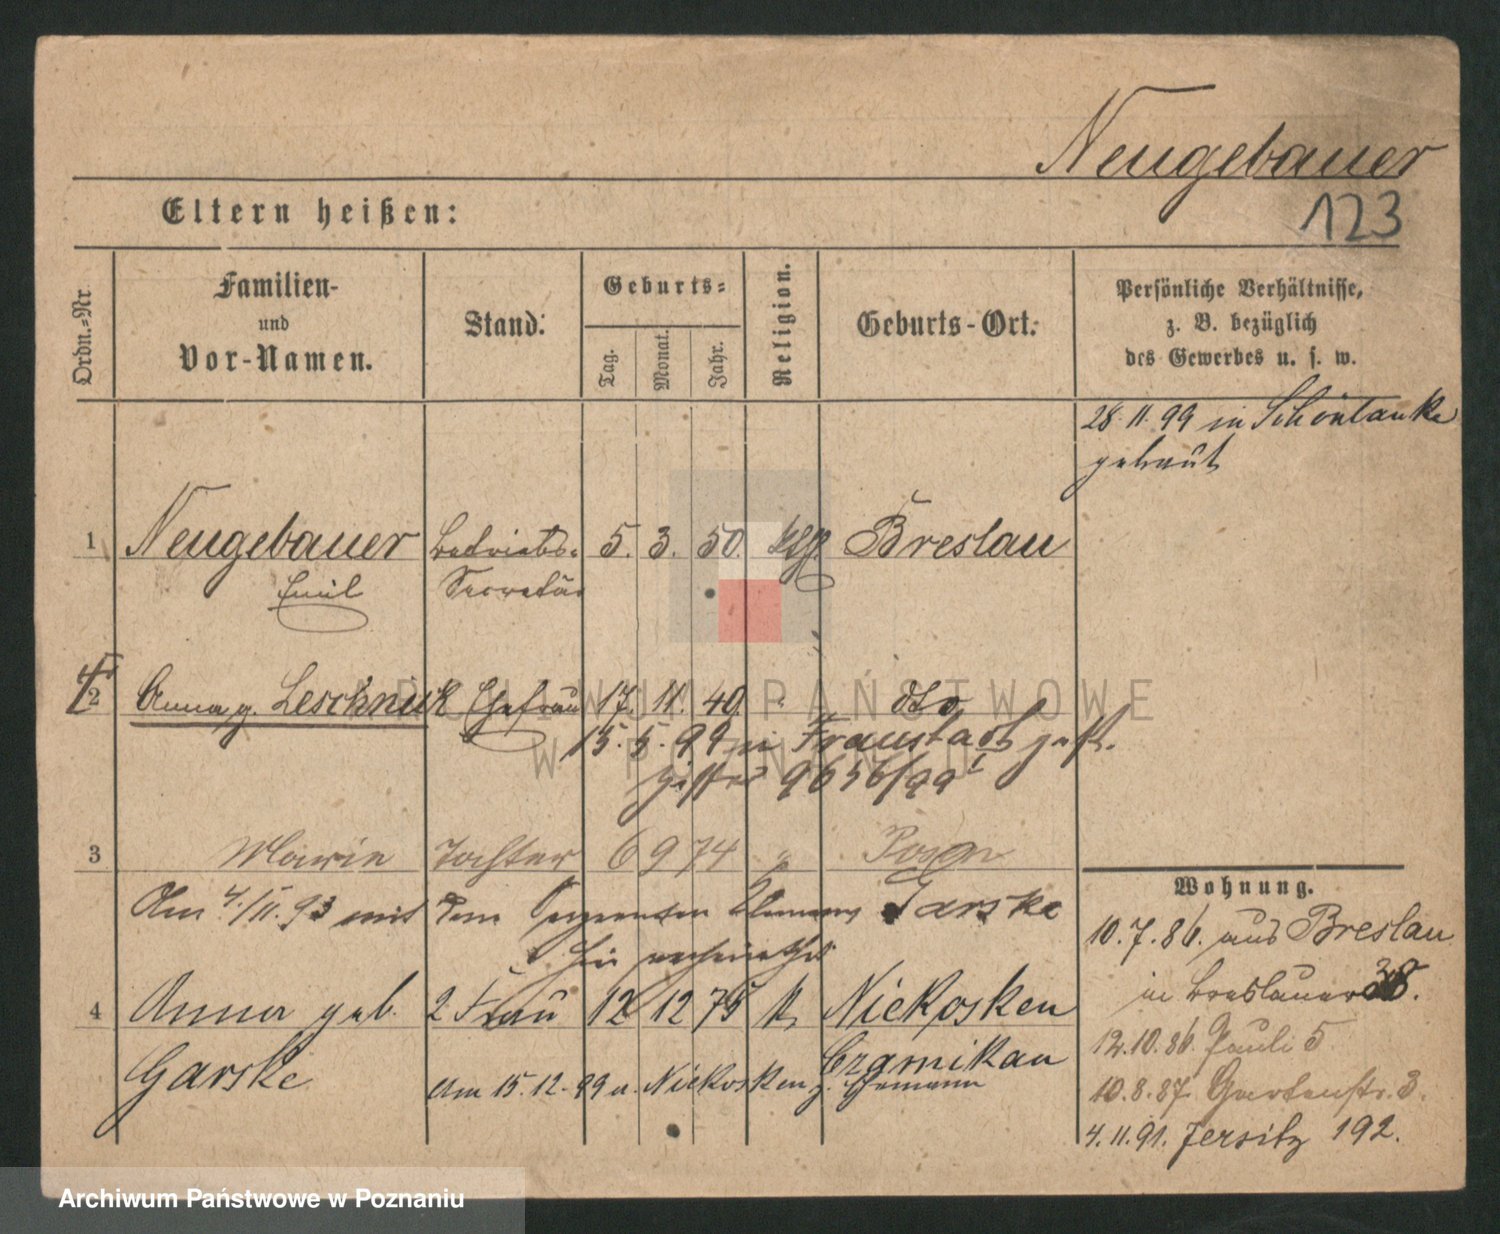 Neugebauer
123
Eltern heißen:
Ordn.=Nr.
Familien-
und
Vor-Namen.
Stand.
Geburts=
Tag.
Monat.
Jahr.
Religion.
Geburts-Ort.
Persönliche Verhältnisse,
z. B. bezüglich
des Gewerbes u. s. w.
28. 11. 99 in Schönlanke
getraut
1 Neugebauer Betriebs- 5. 3. 50 Breslau
Emil Secretär
2 Anna g. Leschnick Ehefrau 17. 11. 49 " dto
15. 5. 99 in Fraustadt gest.
9656/99
3 Marie Tochter 6 9 74 " Posen
Am 4./11. 93 mit dem Sergeanten Clemens Garske
hier verheirathet
4 Anna geb. 2 Frau 12 12 75 k. Niekosken
Garske Czarnikau
Am 15. 12. 99 a. Niekosken z. Ehemann
Wohnung.
10. 7. 86. aus Breslau
in Breslauer 38.
12. 10. 86. Pauli 5
10. 8. 87 Gartenstr. 3.
4. 11. 91. Jersitz 192.
ARCHIWUM PAŃSTWOWE
W POZNANIU
Archiwum Państwowe w Poznaniu